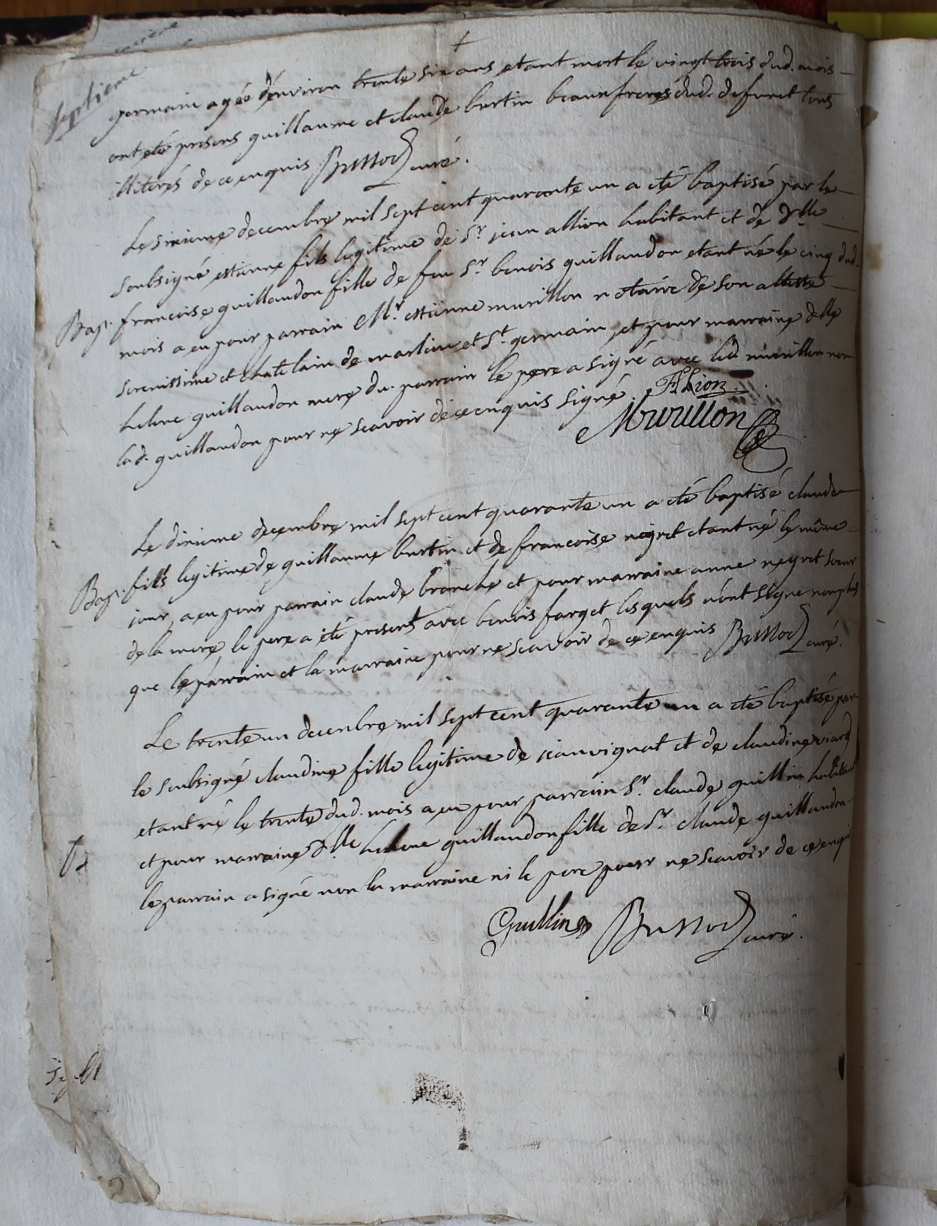 septieme
germain agée d'environ trente six ans etant mort le vingt trois dud. mois
ont eté présens guillaume et claude burtin beaux freres dud. defunct tous
illiterés de ce enquis Bussod curé.
Le sixieme decembre mil sept cent quarante un a eté baptisé par le
soubsigné estienne fils legitime de Sr. jean allion habitant et de dlle
Bap. francoise guillaudon fille de feu Sr. benois guillaudon etant né le cinq dud.
mois a eu pour parrain Mr. estienne murillon notaire de son altesse
serenissime et chatelain de et St. germain et pour marraine dlle
helene guillaudon mere du parrain le pere a signé avec led murillon non
lad. guillaudon pour ne scavoir de ce enquis signé Allion
Murillon
Le dixieme decembre mil sept cent quarante un a eté baptisé claude
Bap. fils legitime de guillaume burtin et de francoise negret etant né le même
jour, a eu pour parrain claude branche et pour marraine anne negret soeur
de la mere le pere a été present avec benois farget lesquels n'ont signé non plus
que le parrain et la marraine pour ne scavoir de ce enquis Bussod curé.
Le trente un decembre mil sept cent quarante un a eté baptisé par
le soubsigné claudine fille legitime de jean vignat et de claudine
etant né le trente dud. mois a eu pour parrain Sr. claude guillin
et pour marraine dlle helene guillaudon fille de Sr. claude guillaudon
le parrain a signé non la marraine ni le pere pour ne scavoir de ce enqui
Guillin Bussod curé.